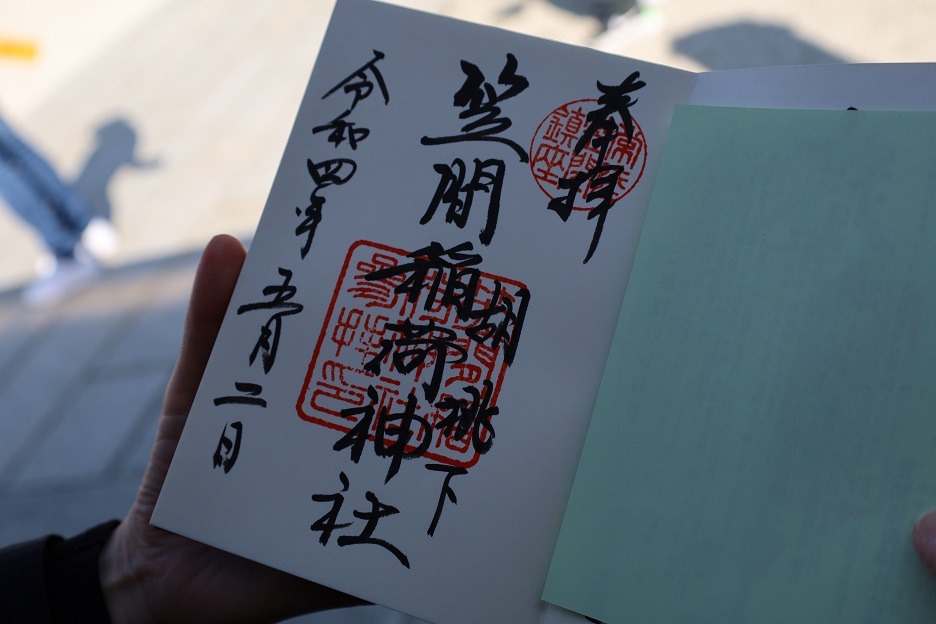 奉拝
胡桃下
笠間稲荷神社
令和四年五月二日